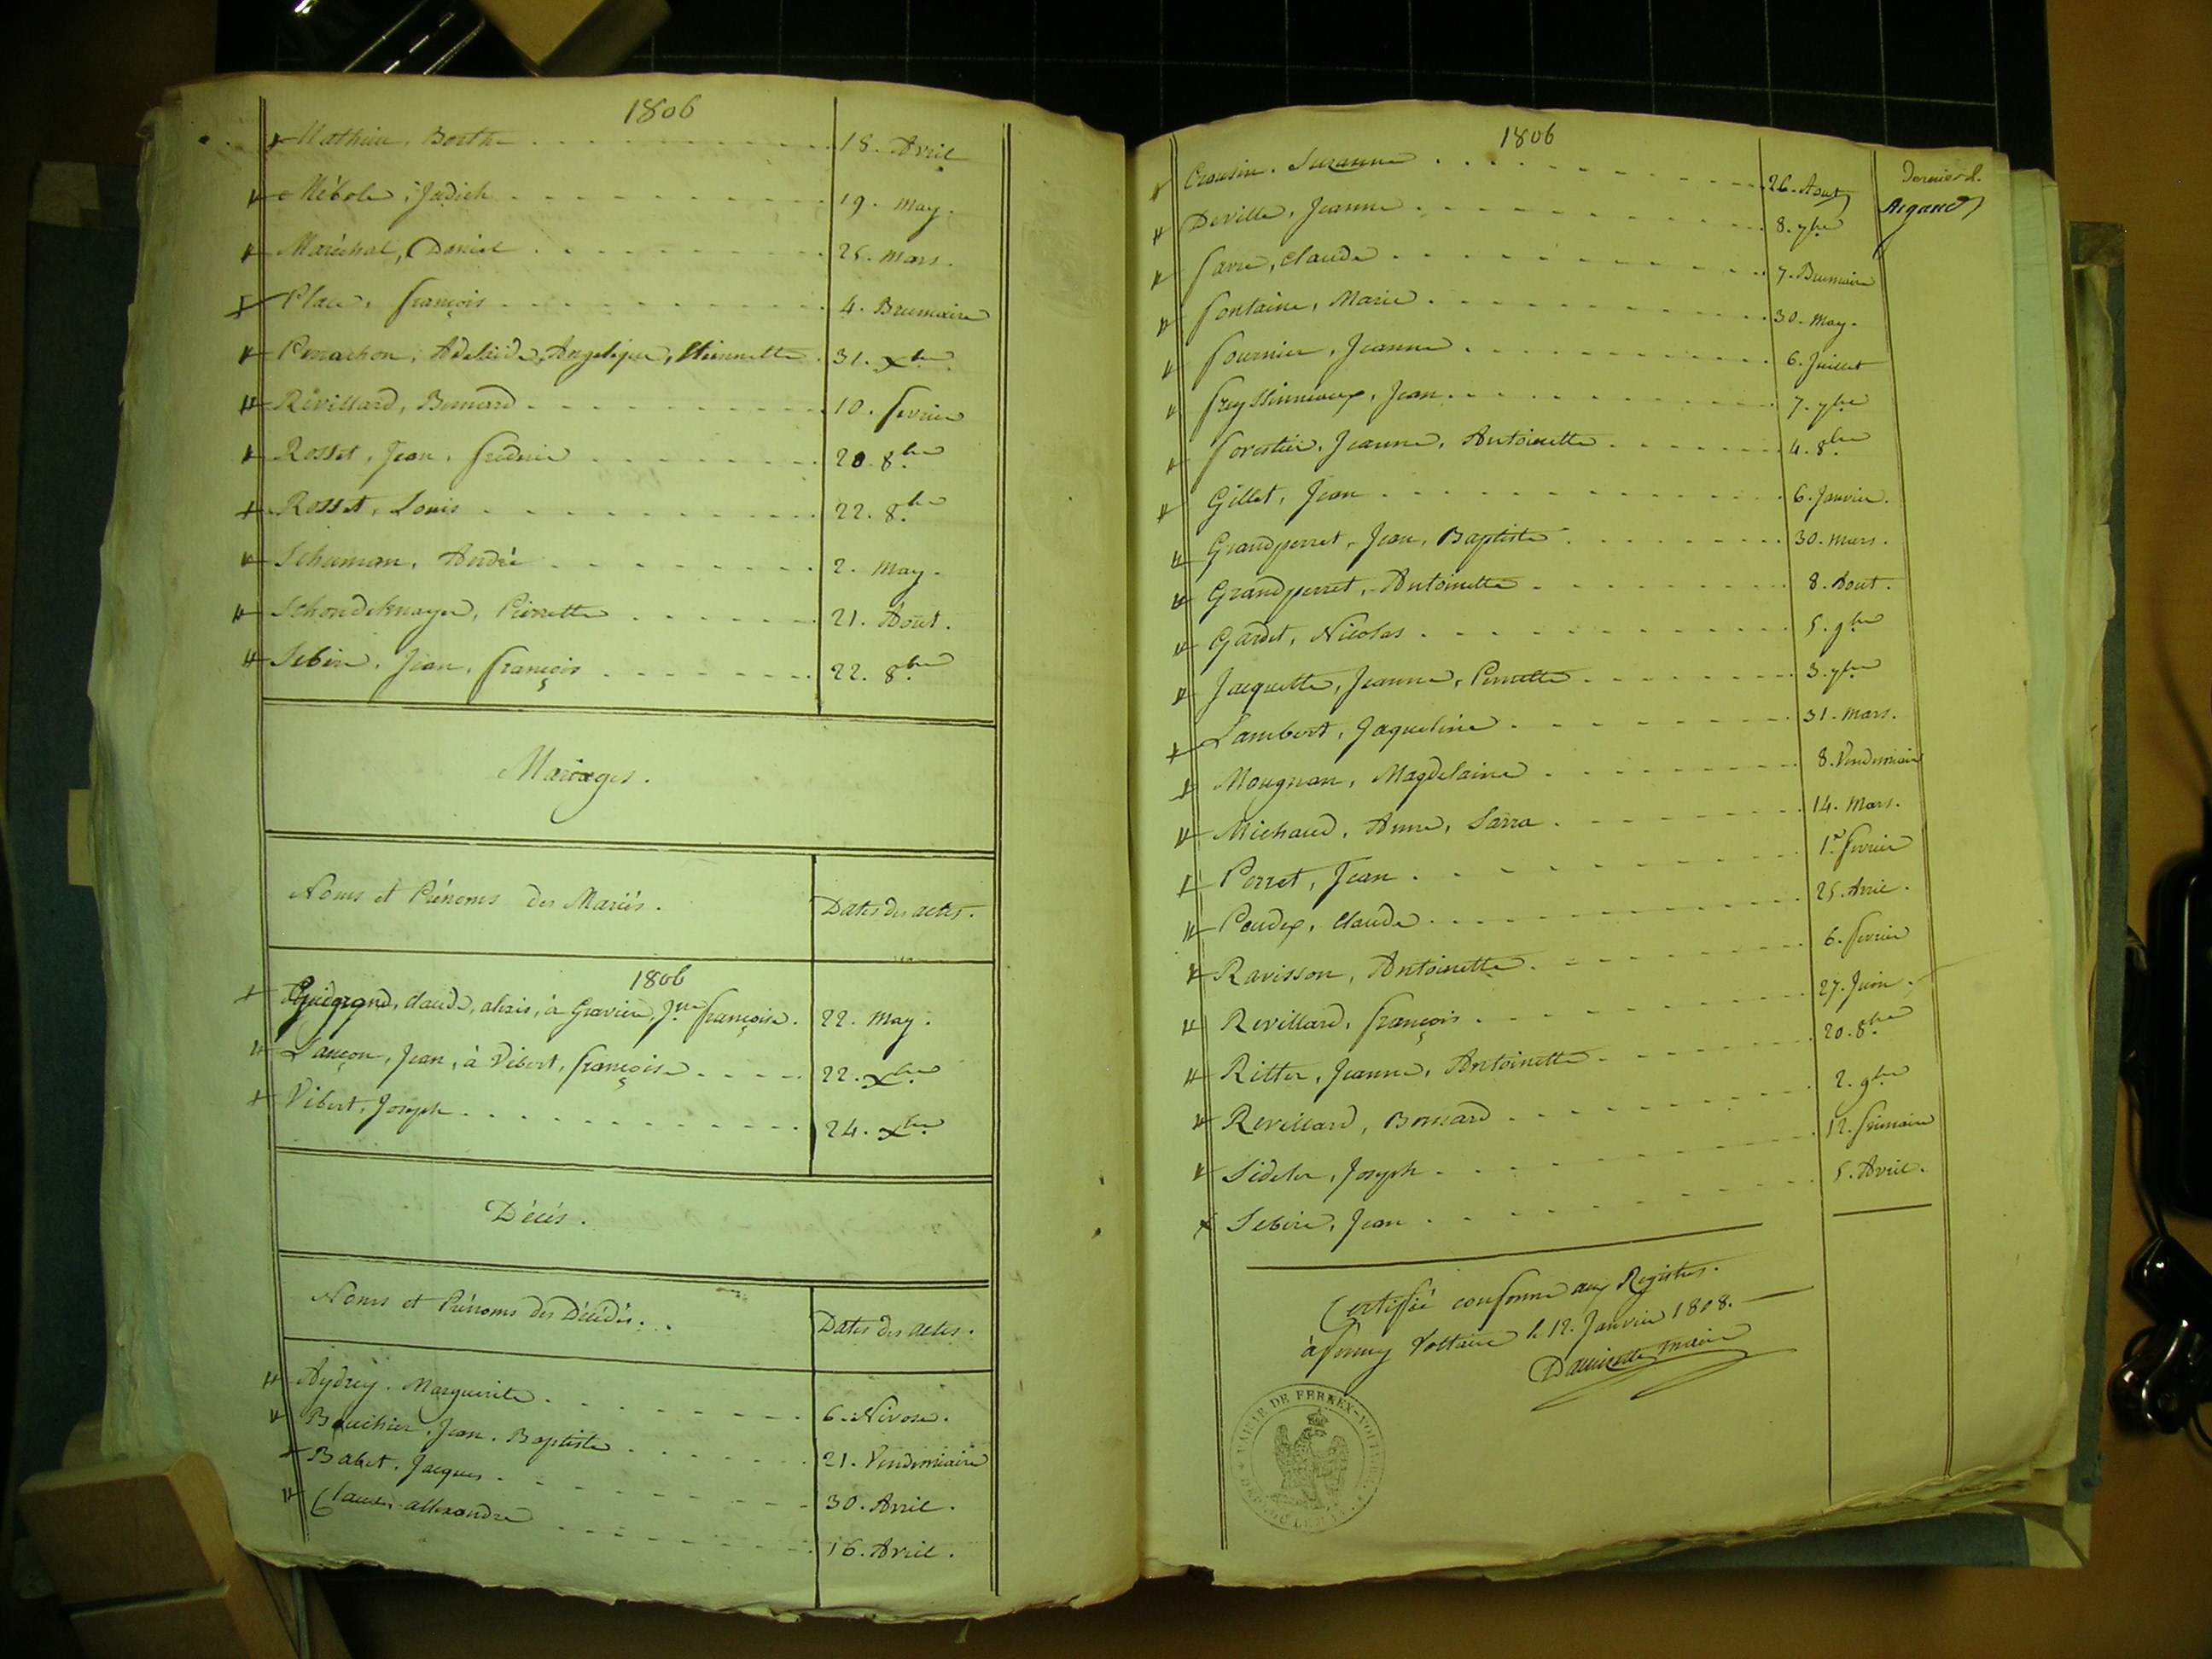 1806
Mathieu, Borth 18. Avril
Nébole, Judich 19. may.
Maréchal, Daniel 25. mars.
Place, françois 4. Brumaire
Penachon, Adelaide, Angelique, Etiennette 31. Xbre
Révillard, Bernard 10. fevrier
Rosset, Jean, frederic 20. 8bre
Rosset, Louis 22. 8bre
Schuman, André 2. may.
Pierrette 21. Aout.
Sebire, Jean, françois 22. 8bre
Mariages.
Noms et Prénoms des Mariés. Dates des actes.
1806
claude, à Gravier, Jne françoise. 22. may.
Lançon, Jean, à Vibert, françoise 22. Xbre
Vibert, Joseph 24. Xbre
Décés.
Noms et Prénoms des Décédés. Dates des actes.
Aydrey, Marguerite 6. Nivose.
Bouchier, Jean, Baptiste 21. Vendémiaire
Babet, Jacques 30. Avril.
Claude, allexandre 16. Avril.
1806
Dernier d.
Argand
Crousin, Suzanne 26. Aout
Deville, Jeanne 8. 7bre
favre, claude 7. Brumaire
fontaine, Marie 30. may.
fournier, Jeanne 6. Juillet
freyssinnieaux, Jean 7. 7bre
forestier, Jeanne, Antoinette 4. 8bre
Gillet, Jean 6. Janvier.
Grandperret, Jean, Baptiste 30. mars.
Grandperret, Antoinette 8. Aout.
Gardet, Nicolas 5. 9bre
Jacquette, Jeanne, Pernette 3. 7bre
Lambert, Jaqueline 31. mars.
Mougnan, Magdelaine 8. Vendemiaire
Michaud, Anne, Sarra 14. Mars.
Perret, Jean 1er fevrier
Poudex, claude 25. Avril.
Ravisson, Antoinette 6. fevrier
Revillard, françois 27. Juin.
Ritter, Jeanne, Antoinette 20. 8bre
Revillard, Bernard 2. 9bre
Sideler, Joseph 12. frimaire
Sebire, Jean 5. Avril.
Certiffié conforme aux Registres.
à ferney Voltaire le 12. Janvier 1808.
maire
MAIRIE DE FERNEX-VOLTAIRE